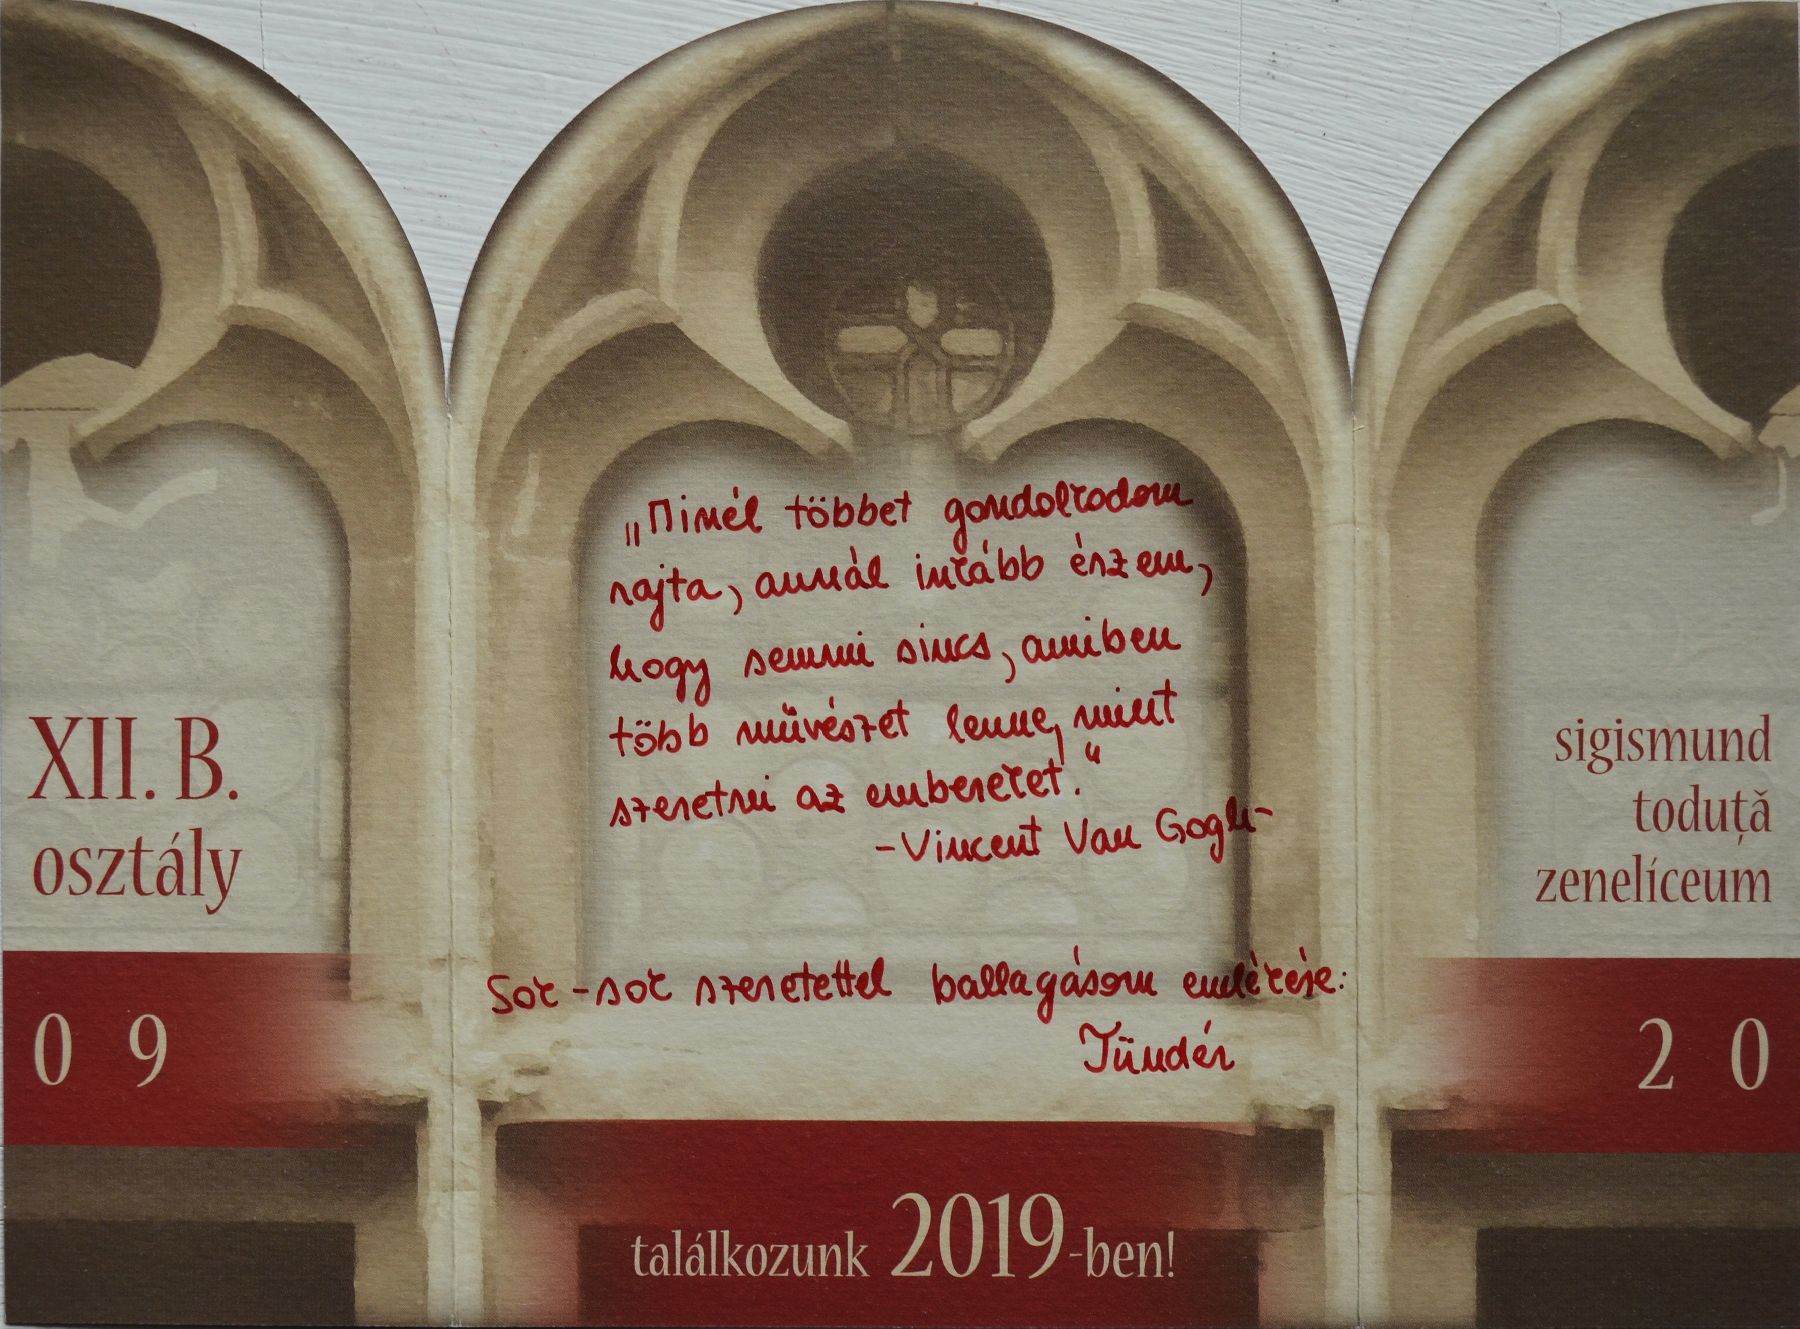 XII. B.
osztály
0 9
„Minél többet gondolkodom
rajta, annál inkább érzem,
hogy semmi sincs, amiben
több művészet lenne, mint
szeretni az embereket."
-Vincent Van Gogh-
Sok-sok szeretettel ballagásom emlékére:
Tündér
találkozunk 2019-ben!
sigismund
toduță
zenelíceum
2 0